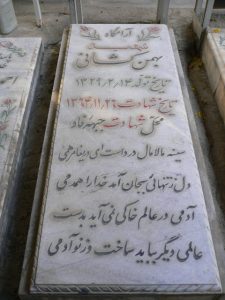 آرامگاه
شهید
بهمن کشانی
تاریخ تولد ۱۳۲۹/۳/۱۳
تاریخ شهادت ۱۳۶۳/۱۱/۲۶
محل شهادت
سینه مالامال درد است ای دریغا مرهمی
دل ز تنهائی بجان آمد خدا را همدمی
آدمی در عالم خاکی نمی آید بدست
عالمی دیگر بباید ساخت وز نو آدمی